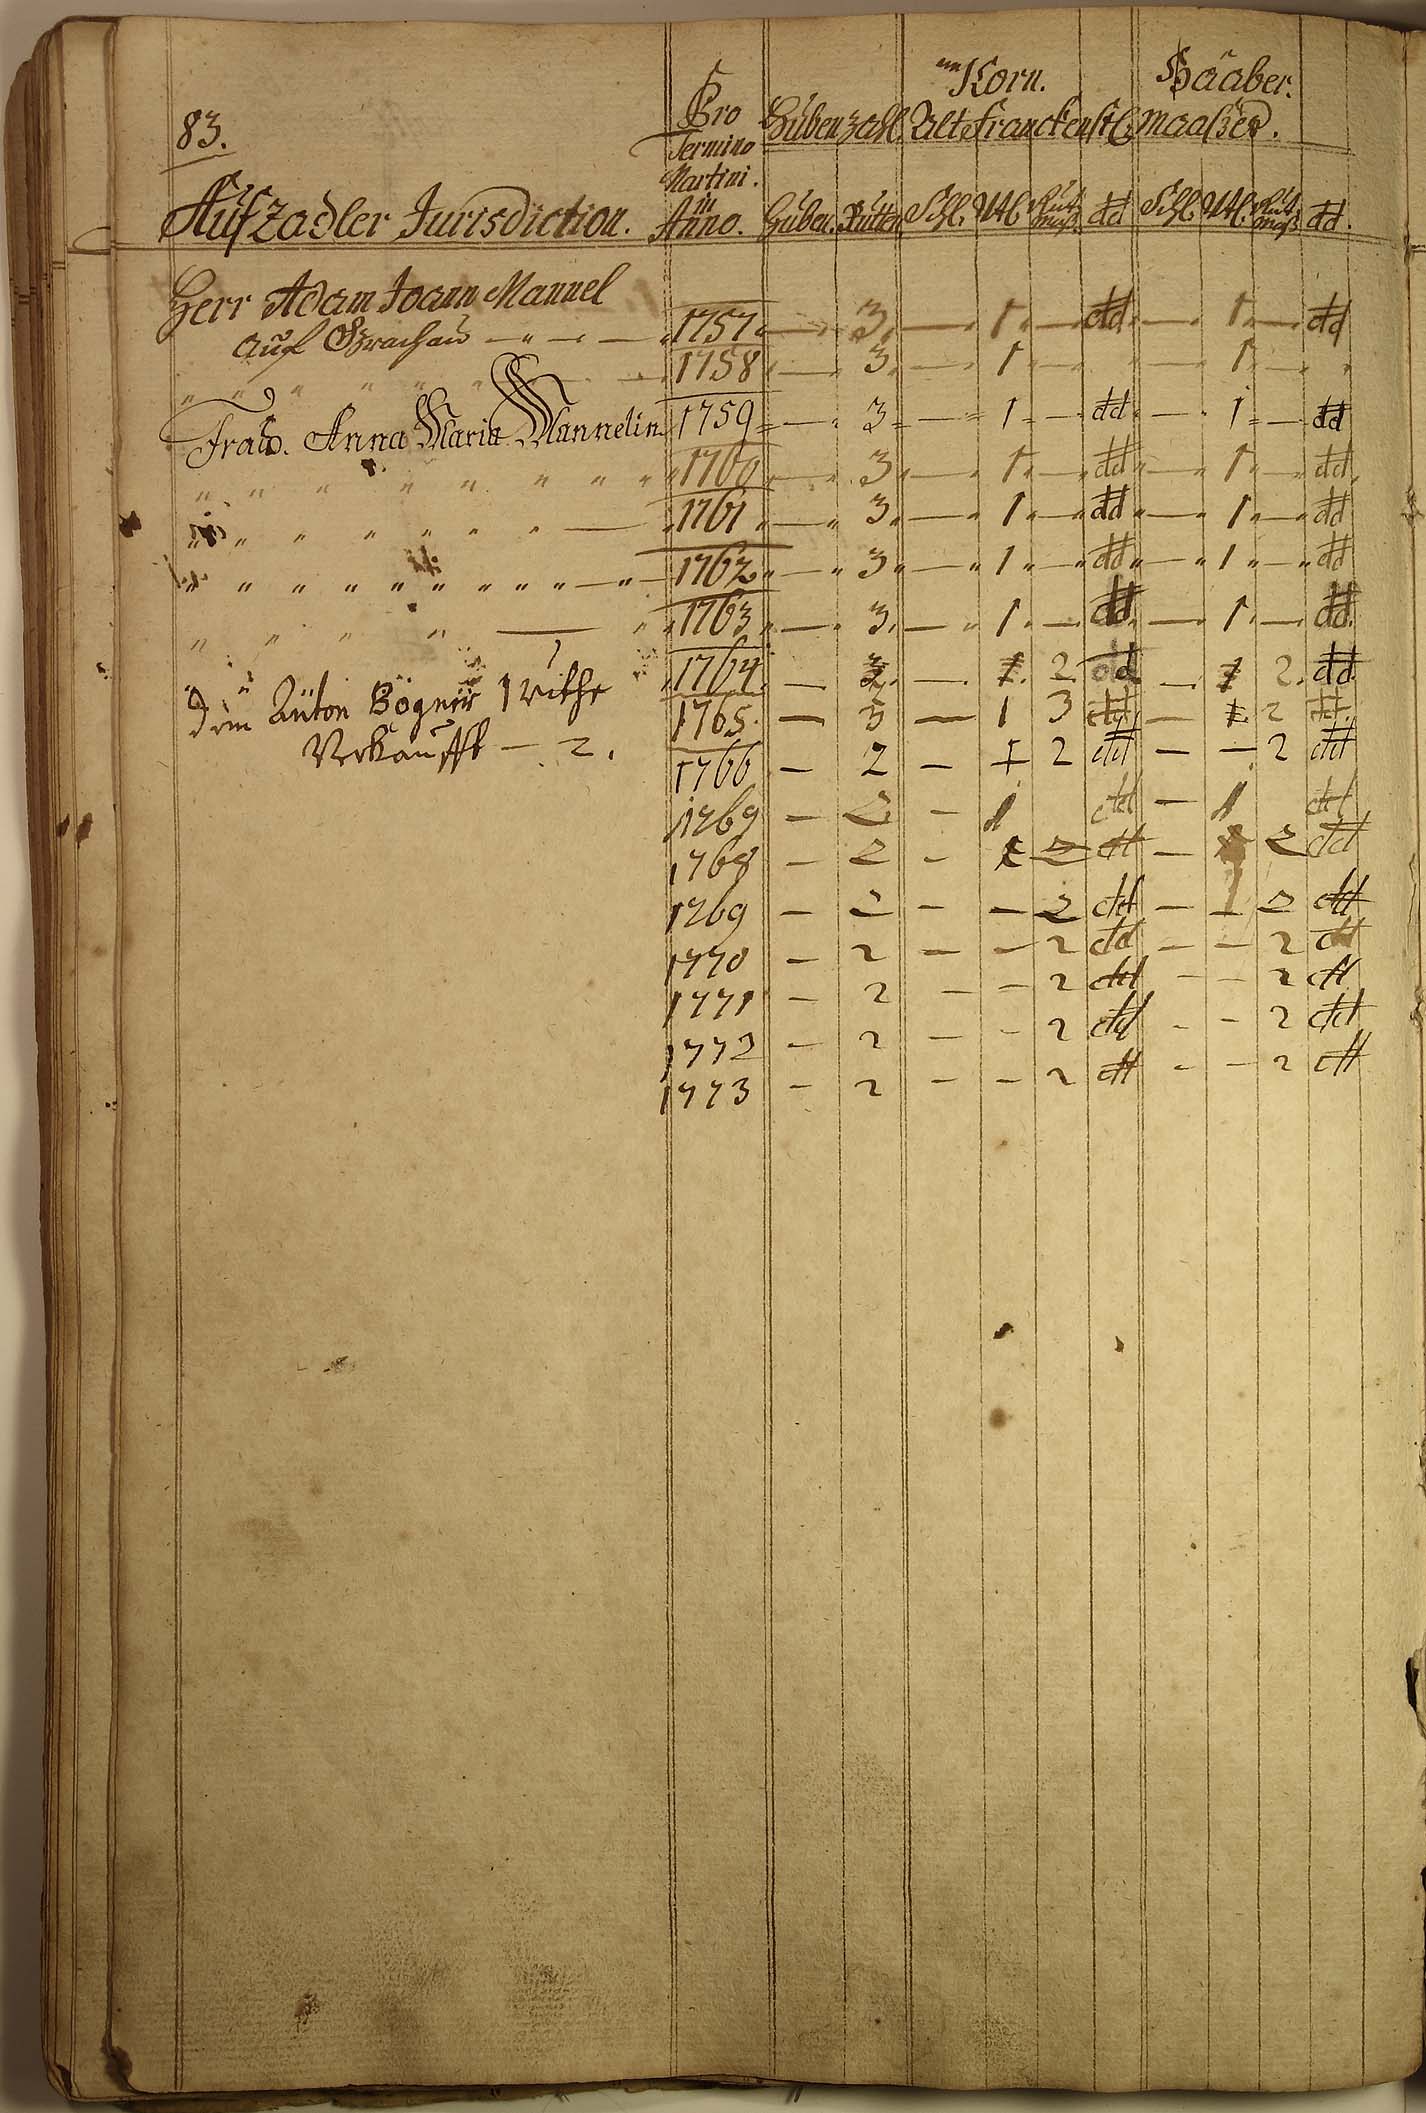 Korn. Haaber.
83. Pro Hubenzahl. Alt Franckenst. Maaßes.
Termino
Martini.
in
Aufzadler Jurisdiction. Anno. Huben. Rutten Schl. Vtl. dd Schl. Vtl. dd.
Herr Adam Joann Mannel
auf — „ — „ — 1757 — 3. — 1. — dd. — 1. — dd
„ „ „ „ „ „ 1758 — 3. — 1. — „ — 1. — „
Frau. Anna Maria Mannelin 1759 — 3 — 1 — dd — 1 — dd
„ „ „ „ „ „ „ „ 1760 — 3 — 1 — dd — 1 — dd
„ „ „ „ „ „ „ — 1761 — 3 — 1 — dd — 1 — dd
„ „ „ „ „ „ „ „ „ — „ — 1762 — 3 — 1 — dd — 1 — dd
„ „ „ „ — „ 1763 — 3. — 1. — dd — 1. — dd.
„ „ 1764. — 3. — 1. 2. dd — 1 2. dd
dem Anton Bögner 1 ruthe 1765. — 3 — 1 3 dd — 1. 2 dd.
Verkaufft — 2. 1766 — 2 — 1 2 dd — — 2 dd
1769 — 2 — 1 dd — 1 dd
1768 — 2 — 1 2 dd — 2 dd
1769 — 2 — — 2 dd — 2 dd
1770 — 2 — — 2 dd — — 2 dd
1771 — 2 — — 2 dd — — 2 dd
1772 — 2 — — 2 dd — — 2 dd
1773 — 2 — — 2 dd — — 2 dd